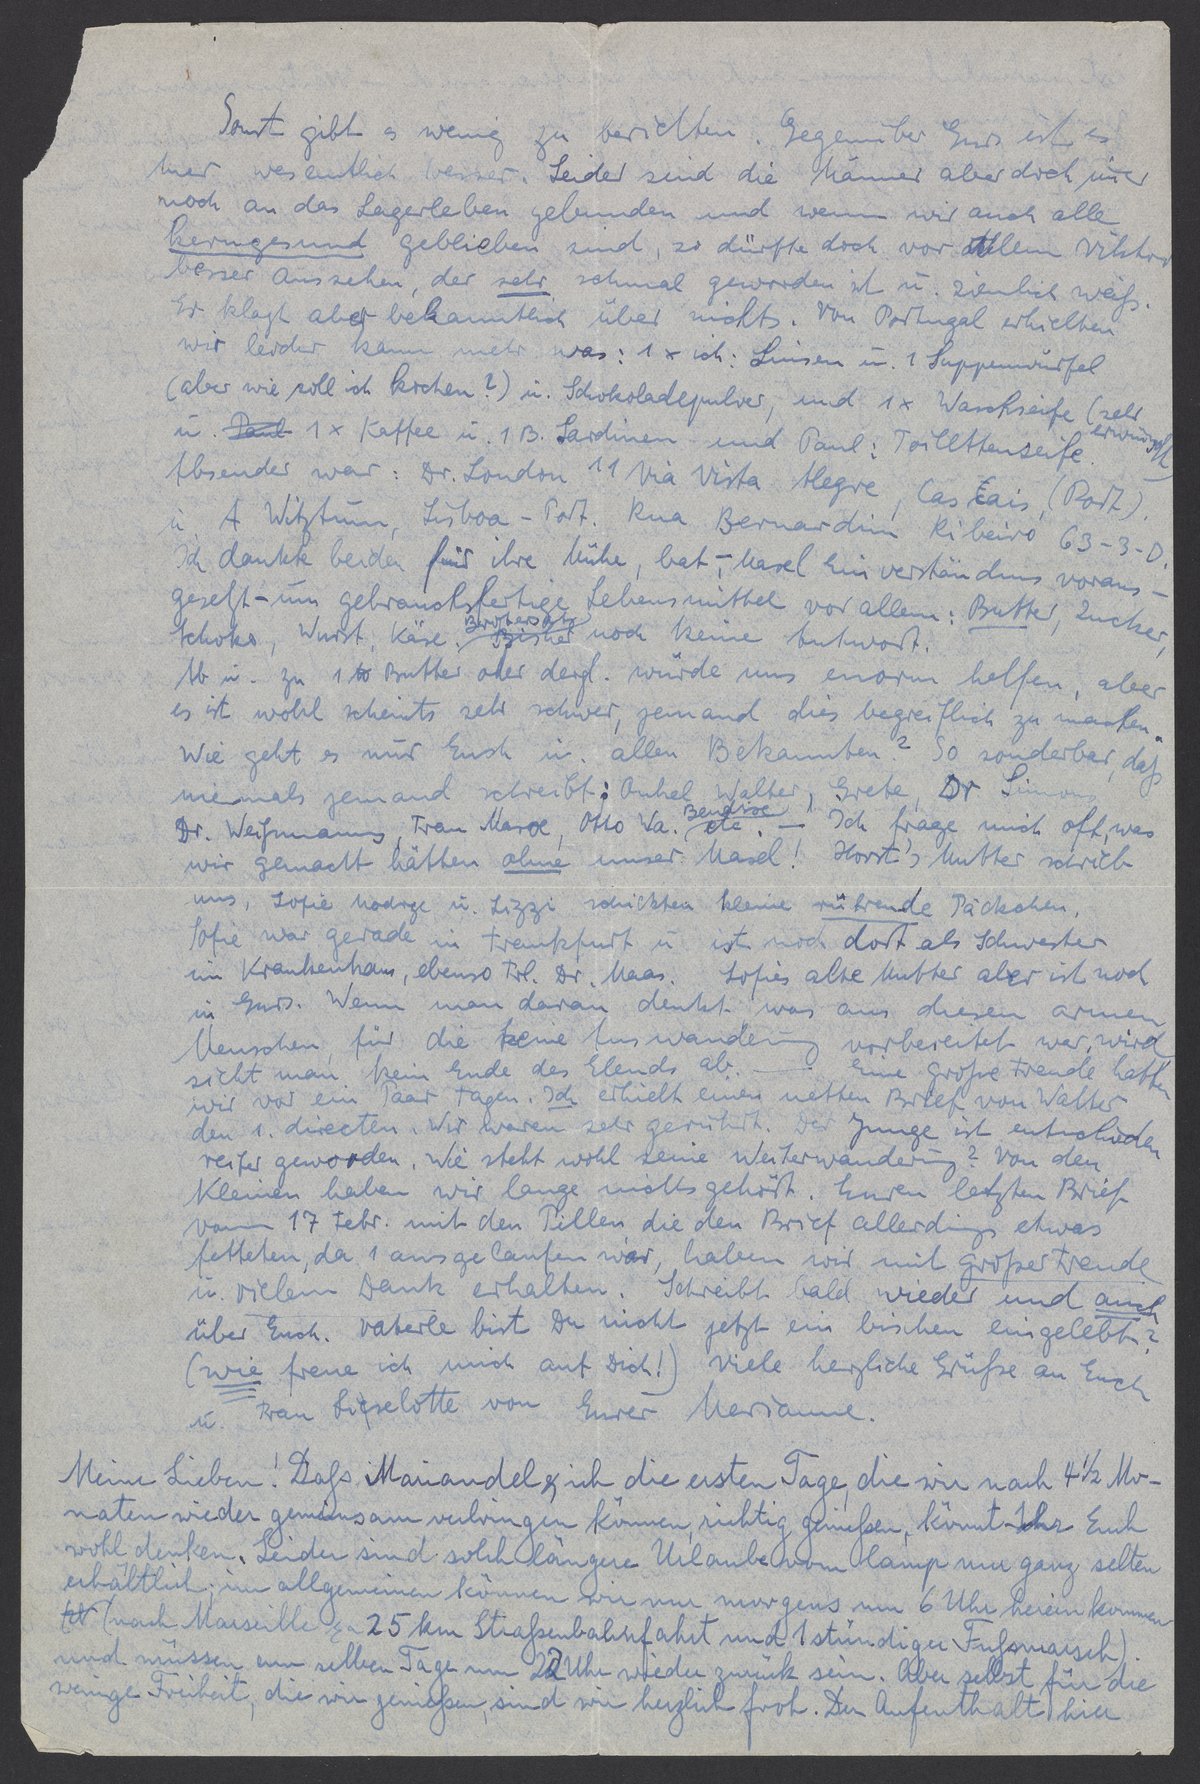 Sonst gibt es wenig zu berichten. Gegenüber Gurs ist es
hier wesentlich besser. Leider sind die Männer aber doch im̄er
noch an das Lagerleben gebunden und wenn wir auch alle
kerngesund geblieben sind, so dürfte doch vor Allem Viktor
besser aussehen, der sehr schmal geworden ist u. ziemlich weiß.
Er klagt aber bekanntlich über nichts. Von Portugal erhielten
wir leider kaum mehr was: 1 x ich: Linsen u. 1 Suppenwürfel
(aber wie soll ich kochen?) u. Schokoladepulver, und 1x Waschseife (sehr erwünscht)
u. Paul 1 x Kaffee u. 1 B. Sardinen und Paul: Toilettenseife.
Absender war: Dr. London 11 Via Vista Alegre, Cascais, (Port).
u A Witztum, Lisboa - Port. Rua Bernardim Ribeiro 63-3-D.
Ich dankte beiden für ihre Mühe, bat, - Masel Einverständnis voraus-
gesetzt - um gebrauchsfertige Lebensmittel vor allem: Butter, Zucker,
Schoko, Wurst, Käse. Brotersatz Bisher noch keine Antwort.
Ab u. zu 1 ℔ Butter oder dergl. würde uns enorm helfen, aber
es ist wohl scheints sehr schwer, jemand dies begreiflich zu machen.
Wie geht es nur Euch u. allen Bekannten? So sonderbar, daß
niemals jemand schreibt: Onkel Walter, Grete, Dr Simons
Dr. Weißmanns, Frau Marx, Otto Wa. etc. — Ich frage mich oft, was
wir gemacht hätten ohne unser Masel! Horst's Mutter schrieb
uns, Sofie u. Lizzi schickten kleine rührende Päckchen.
Sofie war gerade in Frankfurt u ist noch dort als Schwester
im Krankenhaus, ebenso Frl. Dr. Maas. Sofies alte Mutter aber ist noch
in Gurs. Wenn man daran denkt was aus diesen armen
Menschen, für die keine Auswanderung vorbereitet war, wird,
sieht man kein Ende des Elends ab. — Eine große Freude hatten
wir vor ein Paar Tagen. Ich erhielt einen netten Brief von Walter
den 1. directen. Wir waren sehr gerührt. Der Junge ist entschieden
reifer geworden. Wie steht wohl seine Weiterwanderung? Von den
Kleinen haben wir lange nichts gehört. Euren letzten Brief
vom 17 Febr. mit den Pillen die den Brief allerdings etwas
fetteten, da 1 ausgelaufen war, haben wir mit großer Freude
u. vielem Dank erhalten. Schreibt bald wieder und auch
über Euch. Vaterle bist Du nicht jetzt ein bischen eingelebt?
(wie freue ich mich auf Dich!) Viele herzliche Grüße an Euch
u. Frau Lieselotte von Eurer Marianne.
Meine Lieben! Daß Mariandel & ich die ersten Tage, die wir nach 4½ Mo-
naten wieder gemeinsam verbringen können, richtig genießen, könnt Ihr Euch
wohl denken. Leider sind solch längere Urlaube vom Camp nur ganz selten
erhältlich; im allgemeinen können wir nur morgens um 6 Uhr herein kommen
(nach Marseille ca 25 km Straßenbahnfahrt und 1 stündiger Fußmarsch).
und müssen am selben Tage um 22 Uhr wieder zurück sein. Aber selbst für die
wenige Freiheit, die wir genießen, sind wir herzlich froh. Der Aufenthalt hier